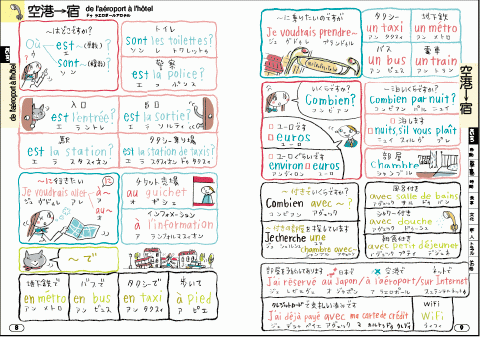 空港→宿
de l'aéroport à l'hôtel
ドゥ ラエロポール アロテル
de l'aéroport à l'hôtel
〜はどこですか?
Où
ウ
est〜(単数)?
エ
sont〜(複数)?
ソン
トイレ
sont les toilettes?
ソン レ トワレット
警察
est la police?
エ ラ ポリス
入口
est l'entrée?
エ ラントレ
出口
est la sortie?
エ ラ ソルティ
駅
est la station?
エ ラ スタスィオン
タクシー乗り場
est la station de taxis?
エ ラ スタスィオン ドゥ タクスィ
〜に行きたい
Je voudrais aller
ジュ ヴドレ アレ
à〜
au〜
チケット売場
au guichet
オ ギシェ
インフォメーション
à l'information
ア ランフォルマスィオン
〜で
地下鉄で
en métro
アン メトロ
バスで
en bus
アン ビュス
タクシーで
en taxi
アン タクスィ
歩いて
à pied
ア ピエ
8
〜に乗りたいのですが
Je voudrais prendre〜
ジュ ヴドレ プランドル
タクシー
un taxi
アン タクスィ
地下鉄
un métro
アン メトロ
バス
un bus
アン ビュス
電車
un train
アン トラン
いくらですか?
Combien?
コンビアン
一泊いくらですか?
Combien par nuit?
コンビアン パル ニュイ
ユーロです
euros
ユーロ
ユーロぐらいです
environ euros
アンヴィロン ユーロ
泊します
nuits,s'il vous plaît
ニュイ スィル ヴ プレ
部屋
chambre
シャンブル
〜付きでいくらですか?
Combien avec〜?
コンビアン アヴェック
〜付きの部屋を探しています
Je cherche une
chambre avec〜
風呂付き
avec salle de bains
アヴェック サル ドゥ バン
シャワー付き
avec douche
アヴェック ドゥシュ
朝食付き
avec petit déjeuner
アヴェック プティ デジュネ
部屋を予約してあります
日本で
空港で
ネットで
J'ai réservé au Japon/à l'aéroport/sur Internet
クレジットカードで支払い済みです
J'ai déjà payé avec ma carte de crédit
WiFi
WiFi
ウィフィ
空港→宿
9